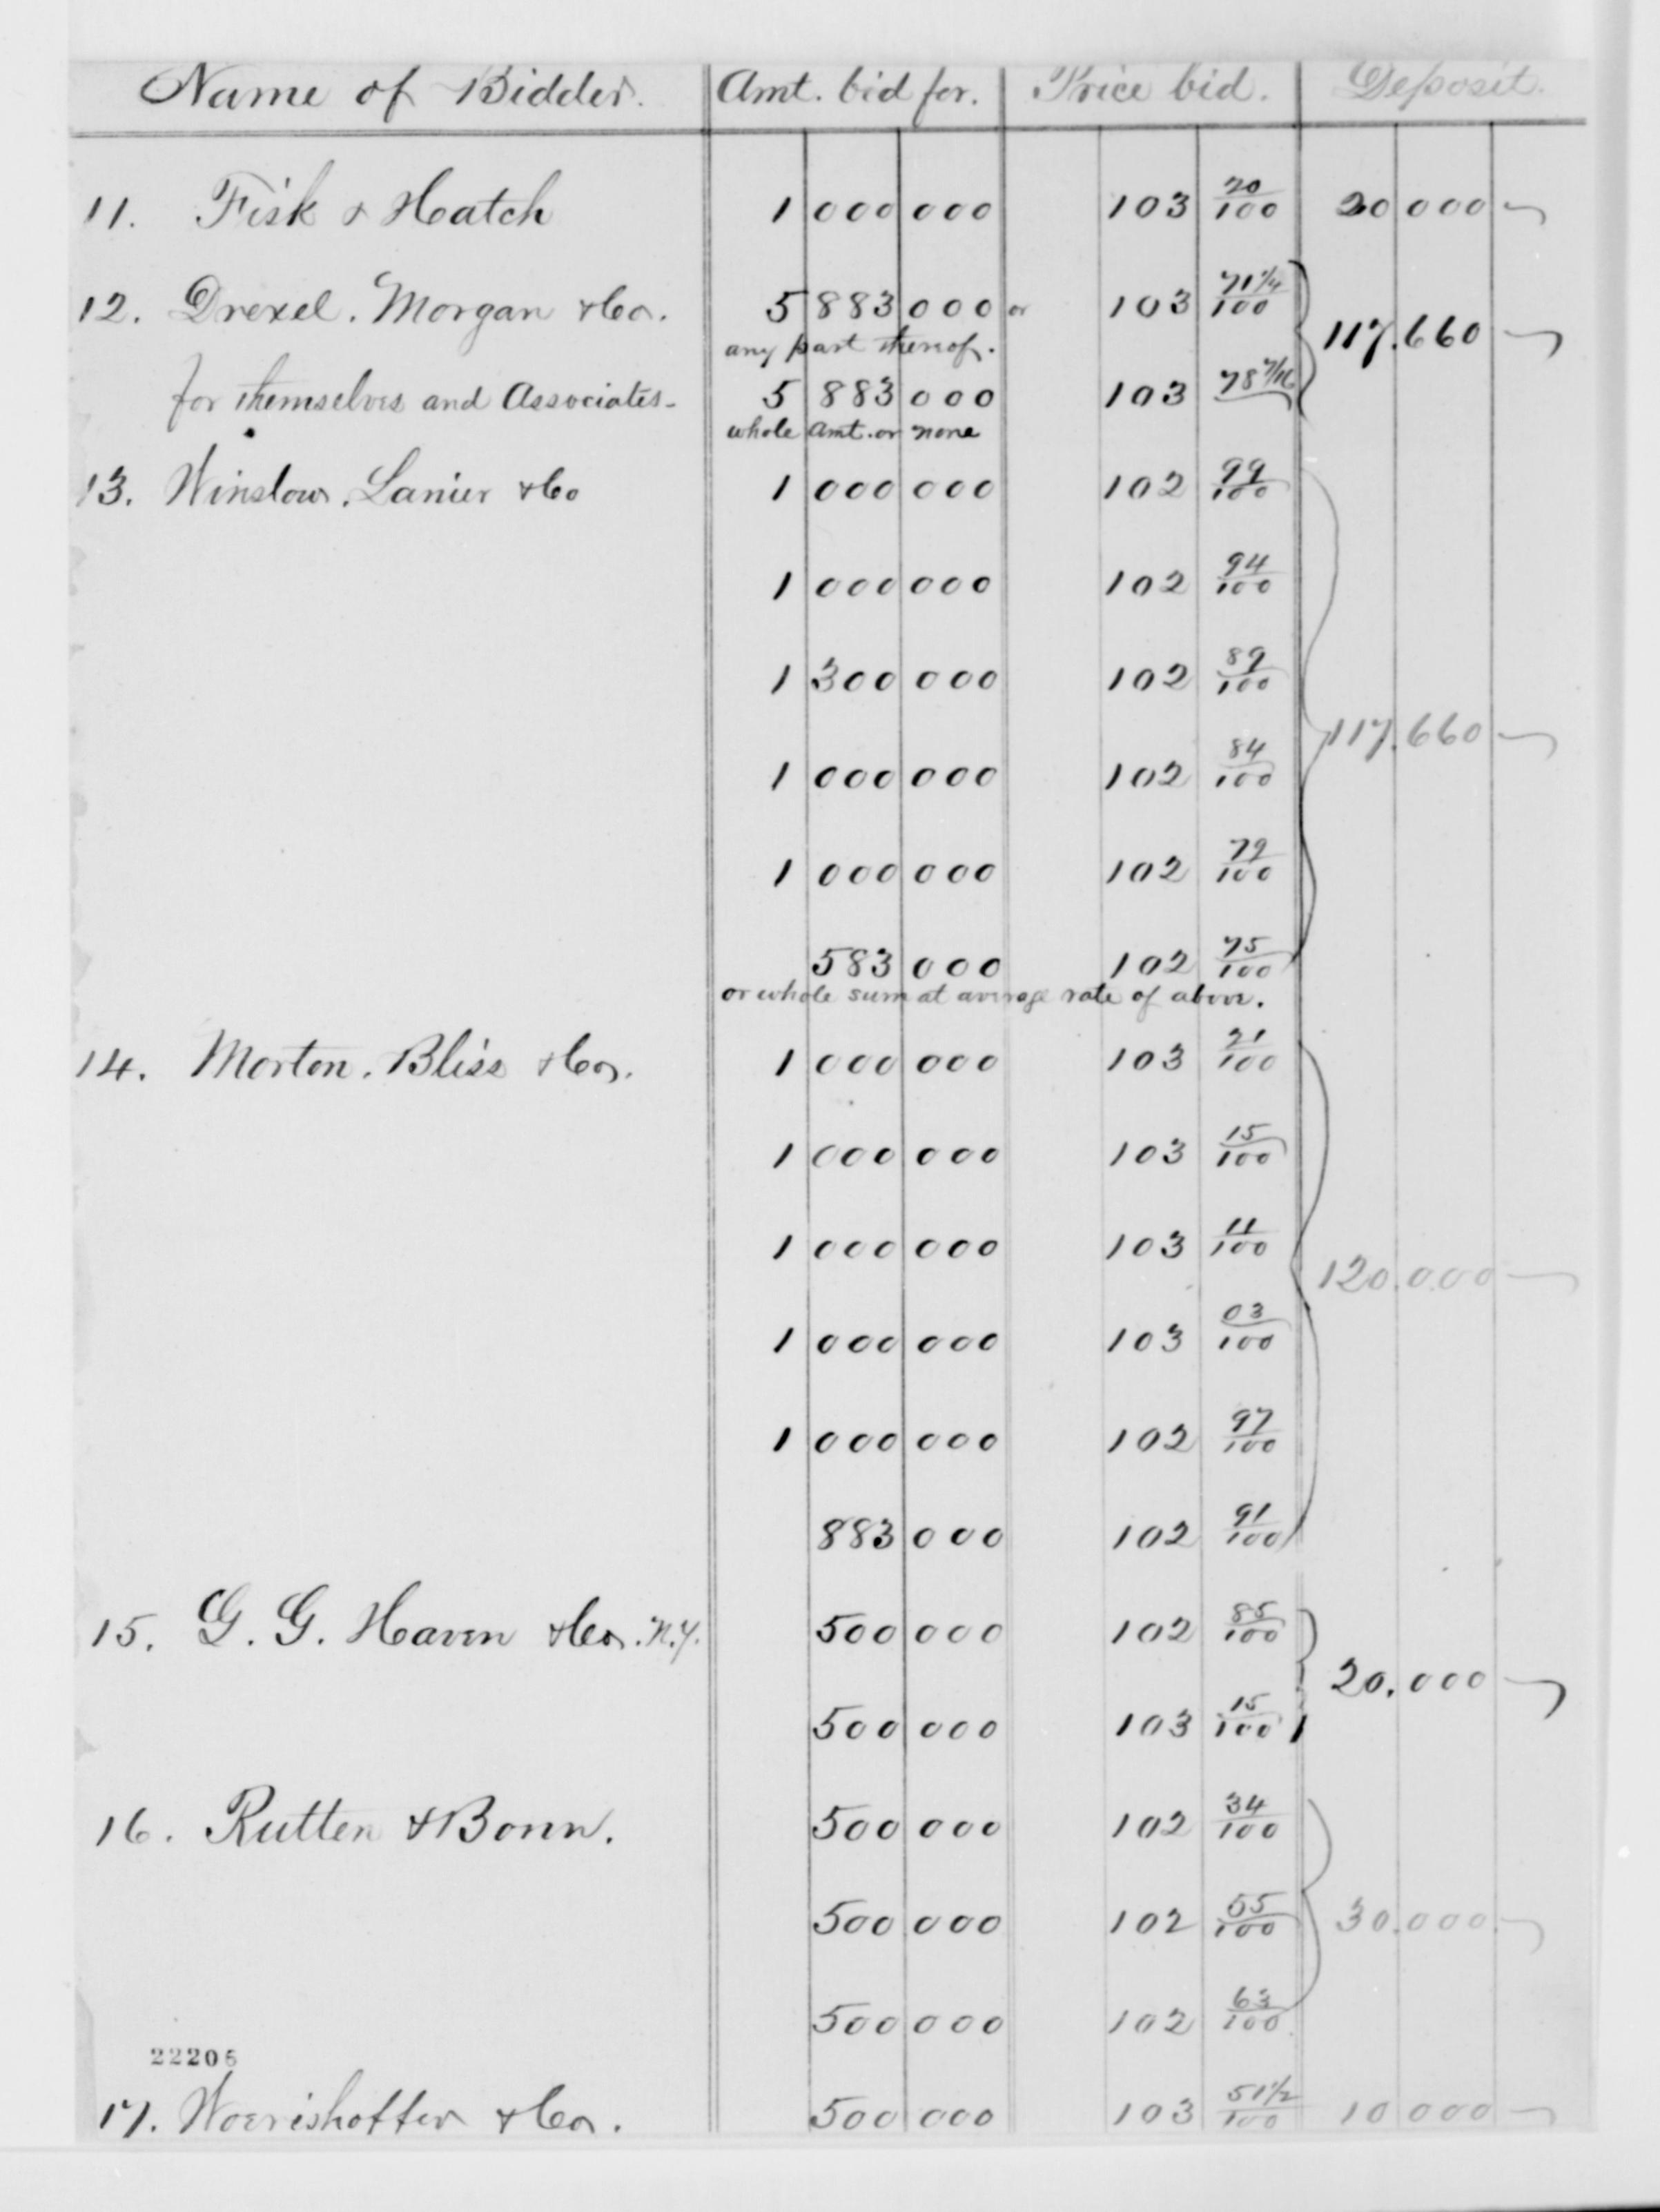 Name of Bidder. Amt. bid for. Price bid. Deposit.
11. Fisk & Hatch 1 000 000 103 20/100 20 000
12. Drexel. Morgan & Co. 5 883 000 or 103 71 1/4/100 117.660
any part thereof.
for themselves and Associates- 5 883 000 103 78 7/16
whole Amt. or none
13. Winslow. Lanier & Co 1 000 000 102 99/100
1 000 000 102 94/100
1 300 000 102 89/100
117.660
1 000 000 102 84/100
1 000 000 102 79/100
583 000 102 75/100
or whole sum at average rate of above.
14. Morton. Bliss & Co. 1 000 000 103 21/100
1 000 000 103 15/100
1 000 000 103 11/100
120.000
1 000 000 103 03/100
1 000 000 102 97/100
883 000 102 91/100
15. G. G. Haven & Co. N.Y. 500 000 102 85/100
20.000
500 000 103 15/100
16. Rutten & Bonn. 500 000 102 34/100
500 000 102 55/100 30.000
500 000 102 63/100
22206
17. Woerishoffer & Co. 500 000 103 51 1/2/100 10 000